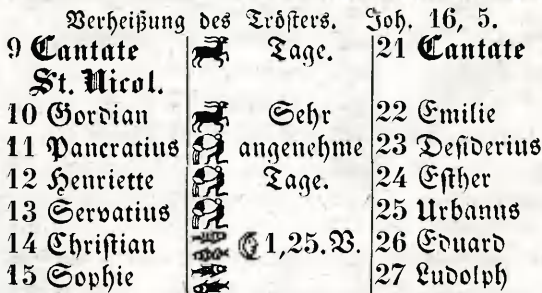 Verheißung des Trösters. Joh. 16, 5.
9 Cantate Tage. 21 Cantate
St. Nicol.
10 Gordian Sehr 22 Emilie
11 Pancratius angenehme 23 Desiderius
12 Henriette Tage. 24 Esther
13 Servatius 25 Urbanus
14 Christian ☾ 1,25. V. 26 Eduard
15 Sophie 27 Ludolph